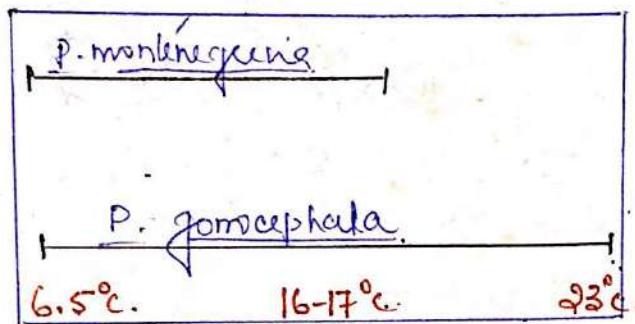 P. montenegrina
P. gonocephala.
6.5°c. 16-17°c. 23°c